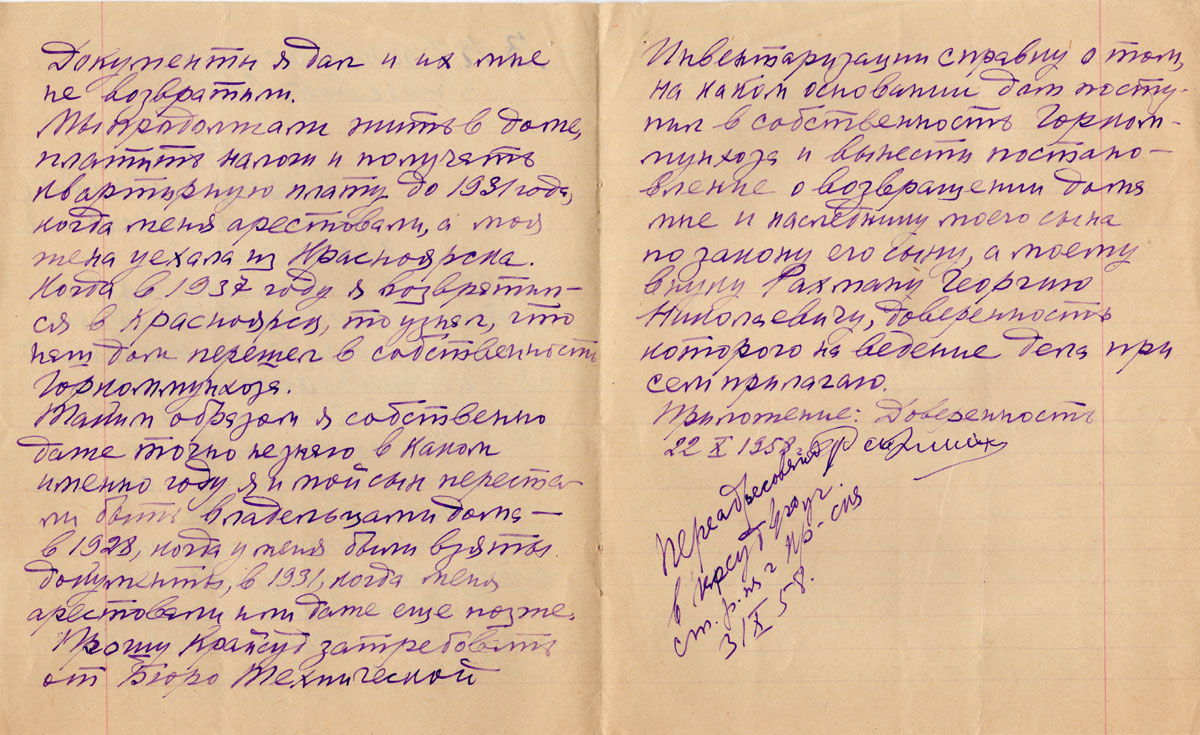 Документы я дал и их мне
не возвратили.
Мы продолжали жить в доме,
платить налоги и получать
квартирную плату до 1931 года,
когда меня арестовали, а моя
жена уехала из Красноярска.
Когда в 1937 году я возвратил-
ся в Красноярск, то узнал, что
наш дом перешел в собственность
Горкоммунхоза.
Таким образом я собственно
даже точно не знаю в каком
именно году я и мой сын переста-
ли быть владельцами дома —
в 1928, когда у меня были взяты
документы, в 1931, когда меня
арестовали или даже еще позже.
Прошу Крайсуд затребовать
от Бюро Технической
Инвентаризации справку о том,
на каком основании дом посту-
пил в собственность Горком-
мунхоза и вынести постано-
вление о возвращении дома
мне и наследнику моего сына
по закону его сыну, а моему
внуку Рахману Георгию
Николаевичу, доверенность
которого на ведение дела при
сем прилагаю.
Приложение: Доверенность
22 X 1958 г.
Переадресована
в нарсуд 4 уч.
ст. р-на г. Кр-ска
31 X 58.